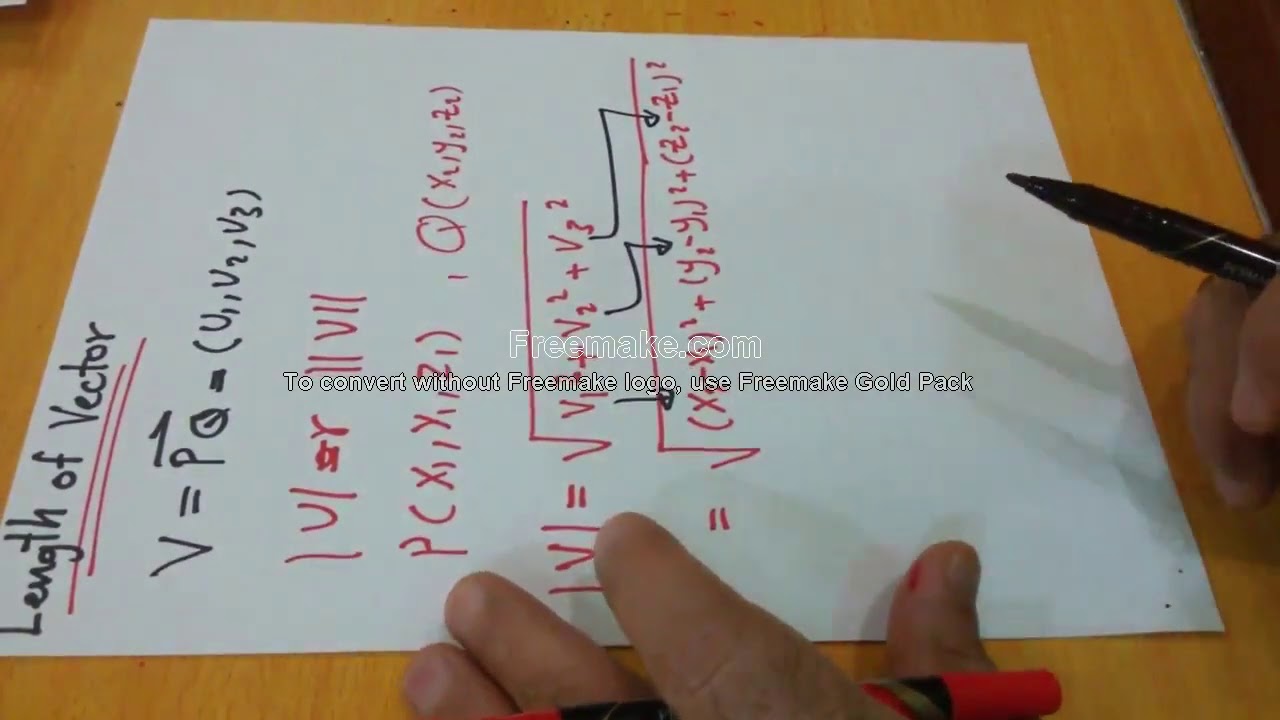 Length of Vector
V = PQ = (V1, V2, V3)
|V| or ||V||
P(x1, y1, z1) , Q(x2, y2, z2)
|V| = √V1² + V2² + V3²
= √(x2-x1)² + (y2-y1)² + (z2-z1)²
Freemake.com
To convert without Freemake logo, use Freemake Gold Pack